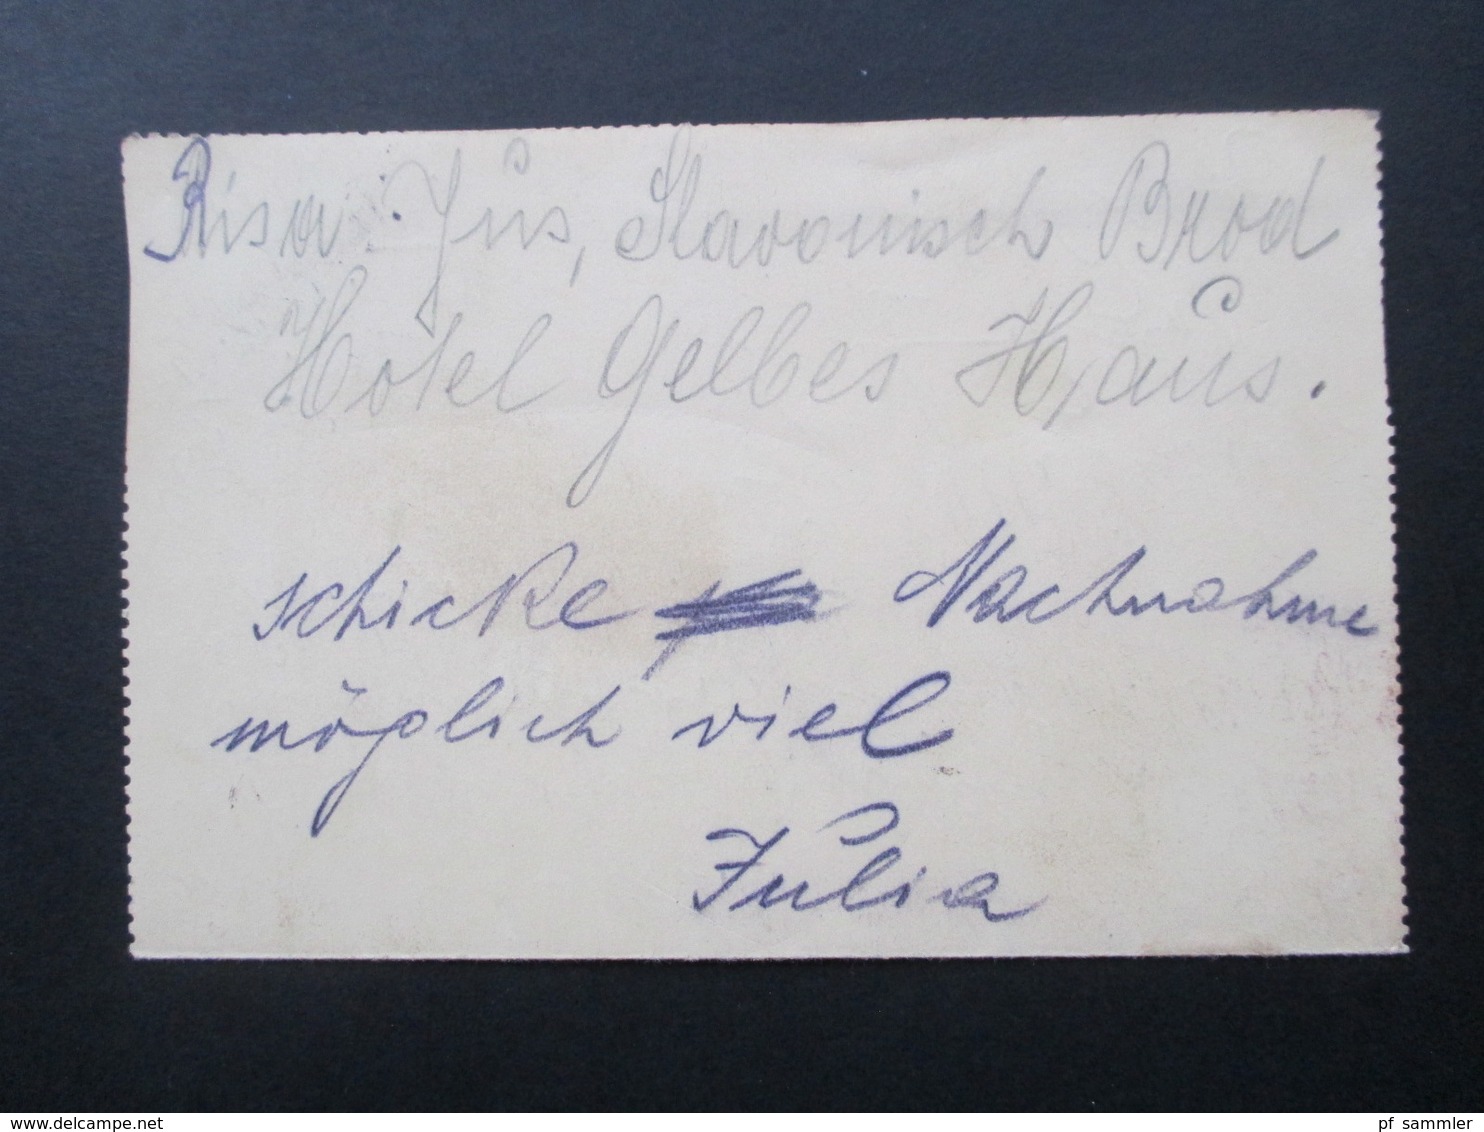 Risa Jus, Slavonisch Brod
Hotel Gelbes Haus.
schicke Nachnahme
möglich viel
Julia
pf_sammler
delcampe.net